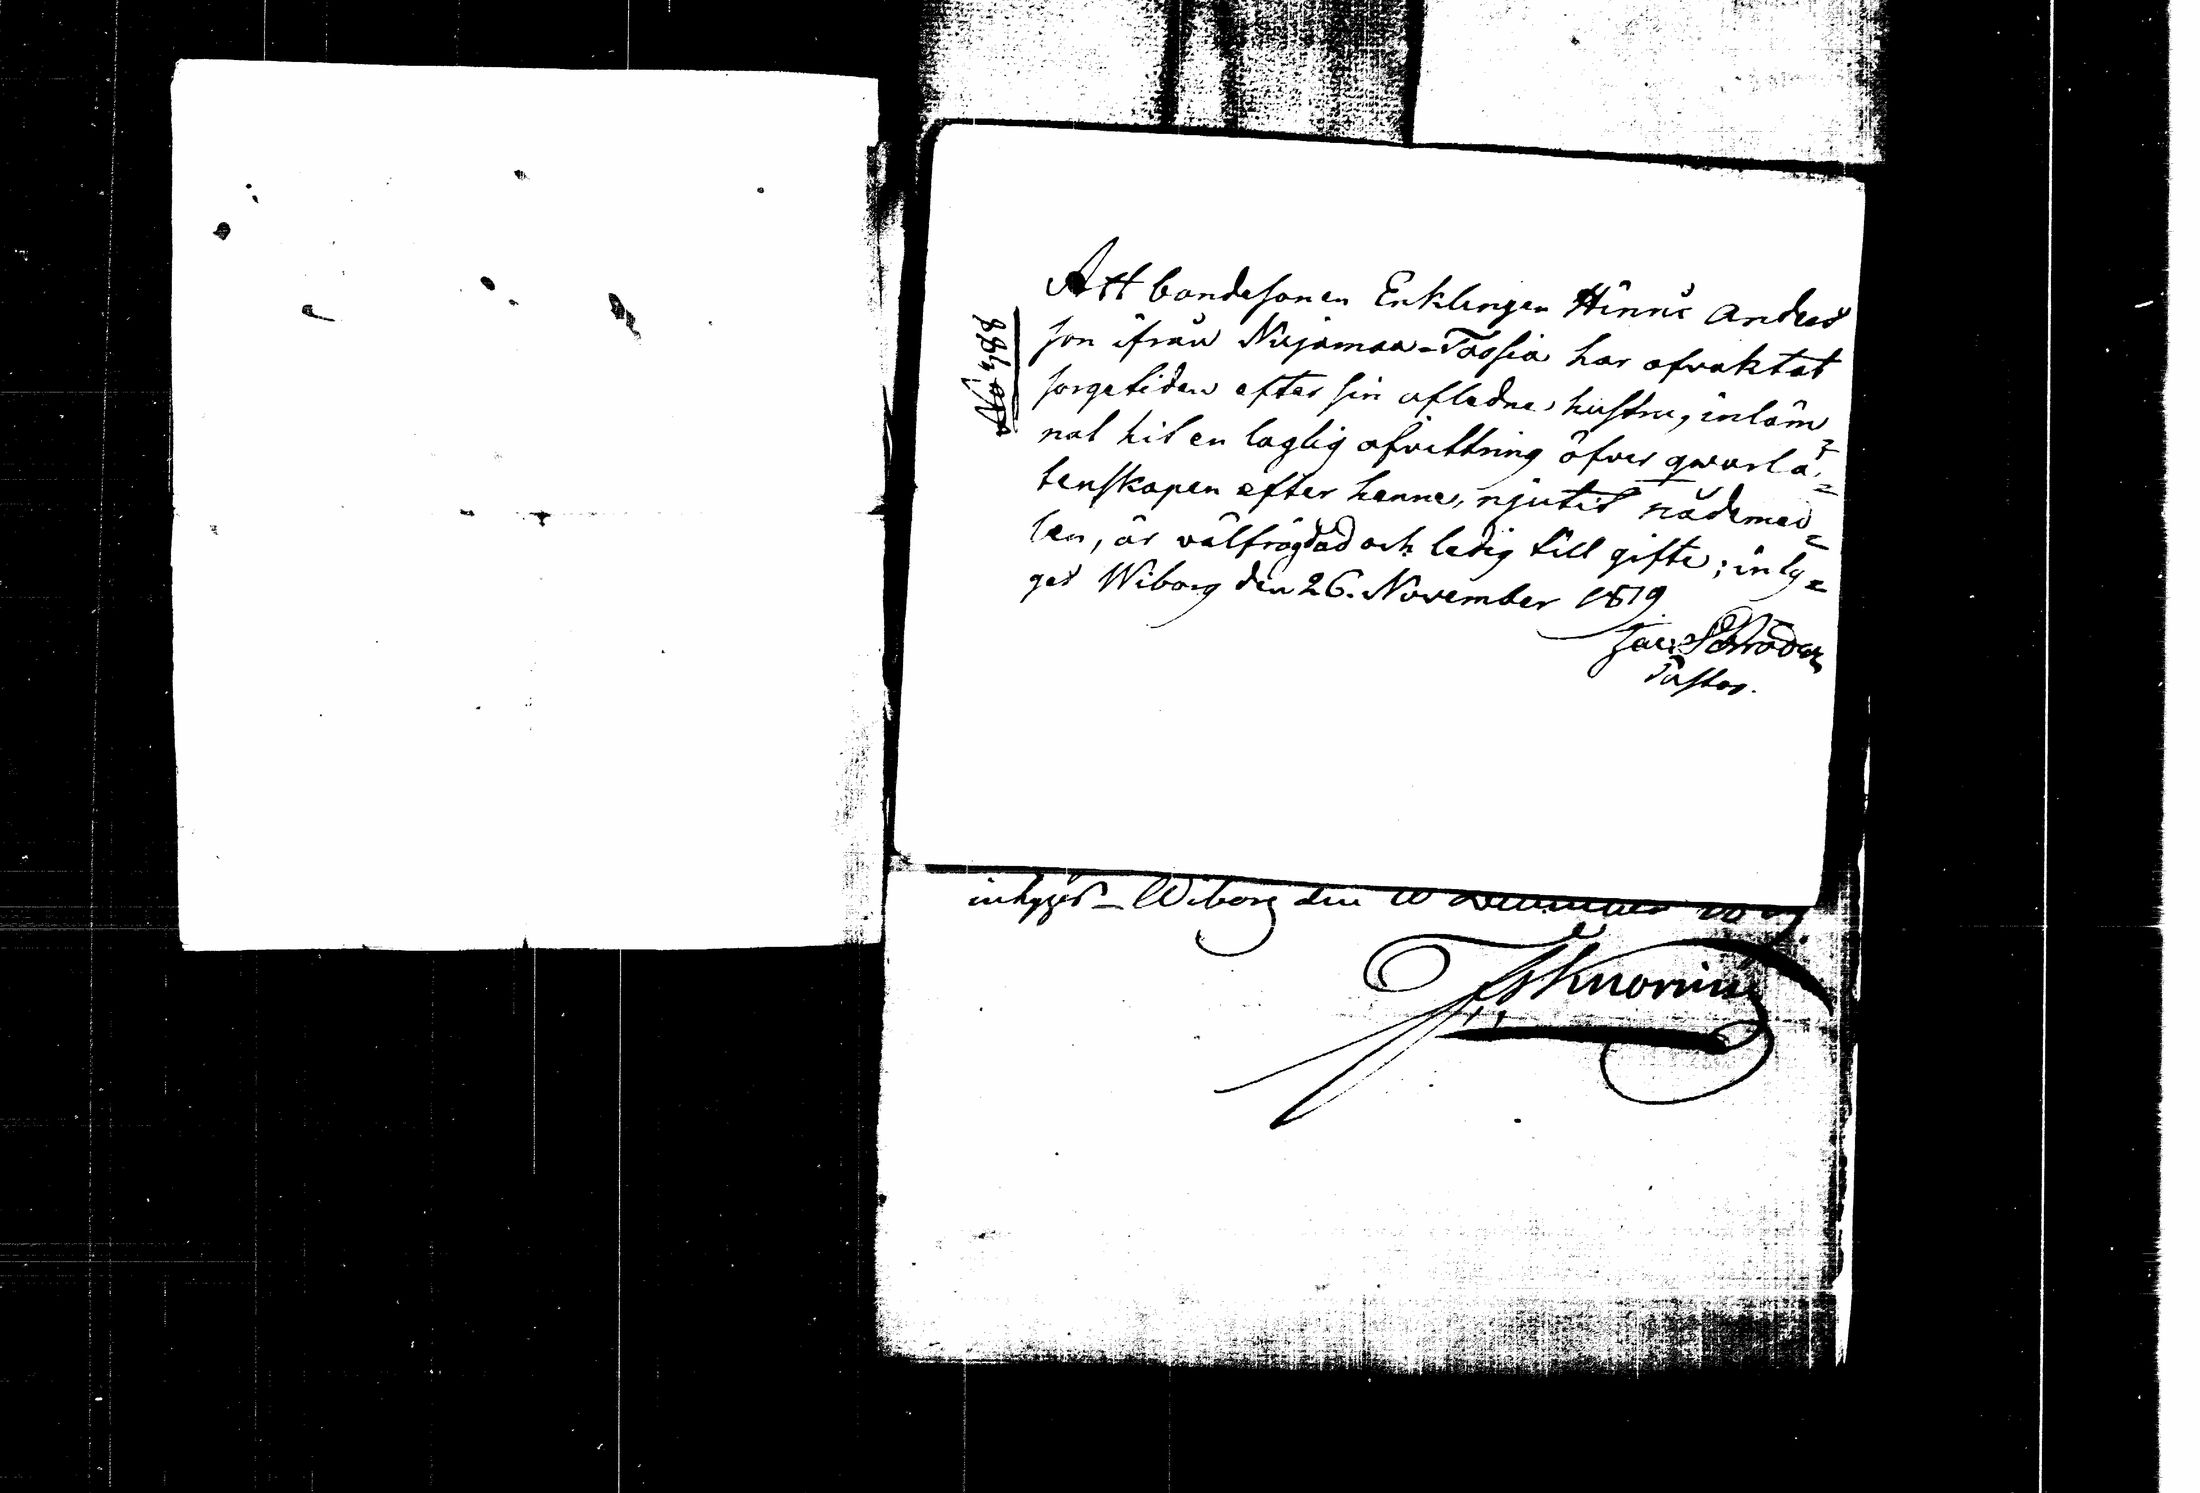 No 488
Att bondesonen Enklingen Hinric Anders
son ifrån Nuijamaa-Tossia har afvaktat
sorgetiden efter sin afledne hustru, inläm
nat hit en laglig afvittring öfver qwarlå=
tenskapen efter henne, njutit nådemed=
len, är välfrägdad och ledig till gifte; inty=
gas Wiborg den 26. November 1819
Jac: Schröder
Pastor.
intygas Wiborg den